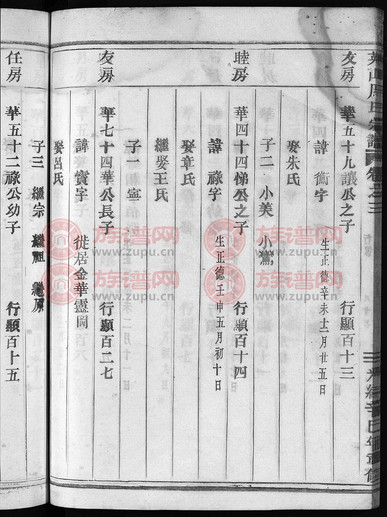 友房
華五十九讓公之子 行顯百十三
諱衛字 生正德辛未十二月廿五日
娶朱氏
子二 小美 小鶯
睦房
華四十四悌公之子 行顯百十四
諱祿字 生正德壬申五月初十日
娶章氏
繼娶王氏
子一 寧
友房
華七十四華公長子 行顯百二七
諱寶字 徙居金華靈閣
娶呂氏
子三 繼宗 繼祖
任房
華五十二祿公幼子 行顯百十五
族谱网
www.zupu.cn
族谱网
www.zupu.cn
族谱网
www.zupu.cn